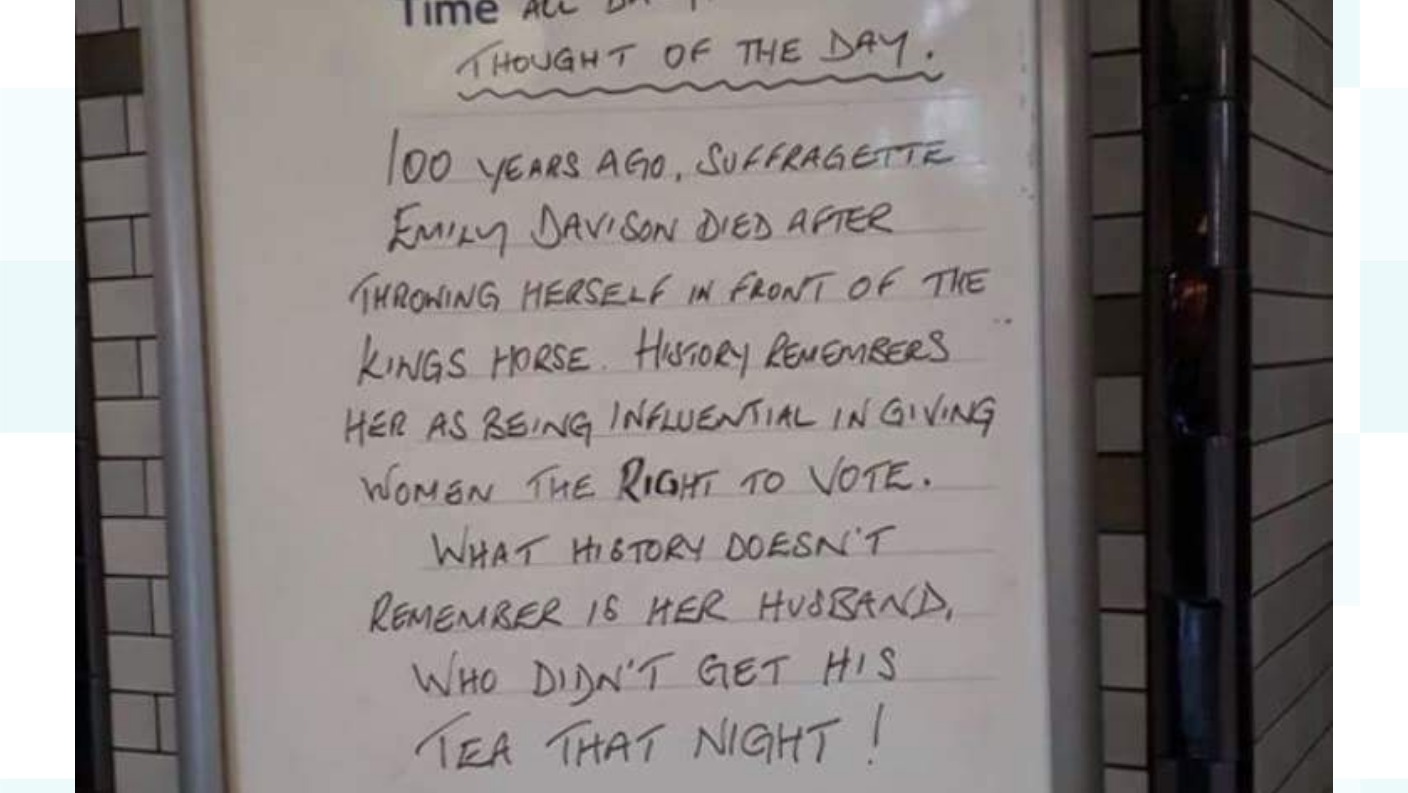 Time ALL DAY
THOUGHT OF THE DAY.
100 YEARS AGO, SUFFRAGETTE
EMILY DAVISON DIED AFTER
THROWING HERSELF IN FRONT OF THE
KINGS HORSE. HISTORY REMEMBERS
HER AS BEING INFLUENTIAL IN GIVING
WOMEN THE RIGHT TO VOTE.
WHAT HISTORY DOESN'T
REMEMBER IS HER HUSBAND,
WHO DIDN'T GET HIS
TEA THAT NIGHT!